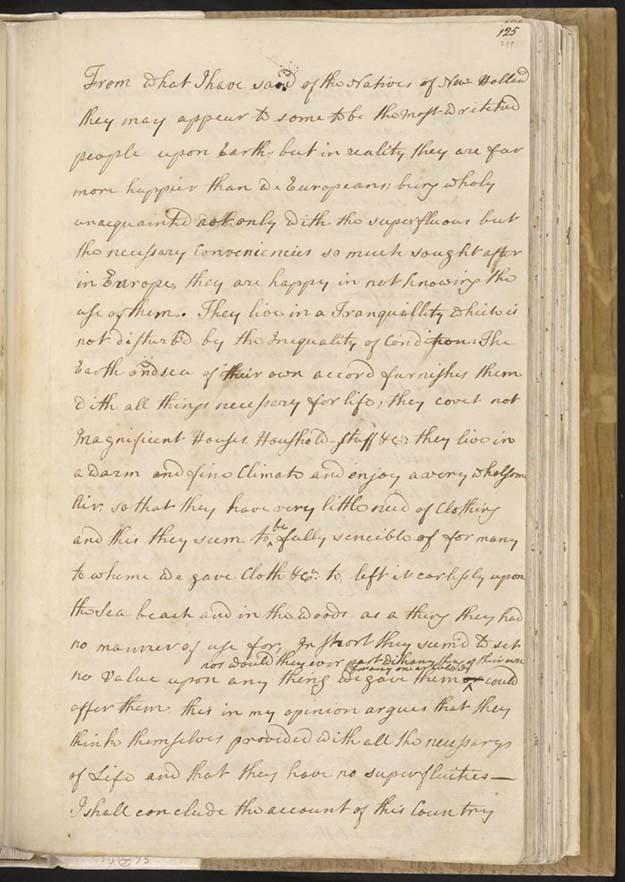 125
From what I have said of the Natives of New Holland
they may appear to some to be the most wretched
people upon Earth, but in reality they are far
more happier than we Europeans; being wholy
unacquainted not only with the superfluous but
the necessary Conveniencies so much sought after
in Europe, they are happy in not knowing the
use of them. They live in a Tranquillity which is
not disturb'd by the Inequality of Condition: The
Earth and sea of their own accord furnishes them
with all things necessary for life, they covet not
Magnificent Houses, Houshold-stuff &ca they live in
a warm and fine Climate and enjoy a very wholsome
Air, so that they have very little need of Clothing
and this they seem to be fully sencible of for many
to whome we gave Cloth &ca to, left it carlessly upon
the Sea beach and in the woods as a thing they had
no manner of use for. In short they seem'd to set
nor would they ever part with any thing of their own
no Value upon any thing we gave them or could
offer them this in my opinion argues that they
think themselves provided with all the necessarys
of Life and that they have no superfluities—
I shall conclude the account of this Country